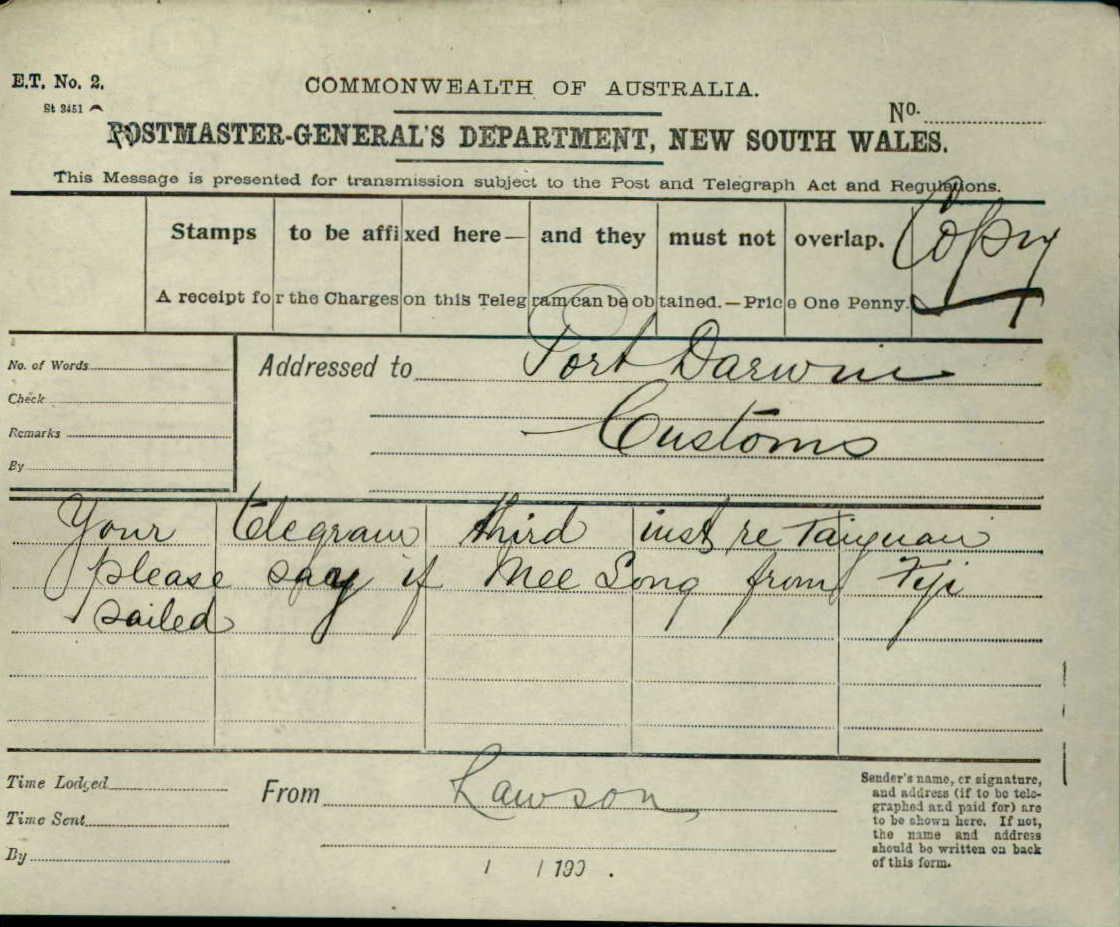 E.T. No. 2.
St 3451
COMMONWEALTH OF AUSTRALIA.
No.
POSTMASTER-GENERAL'S DEPARTMENT, NEW SOUTH WALES.
This Message is presented for transmission subject to the Post and Telegraph Act and Regulations.
Stamps to be affixed here— and they must not overlap.
Copy
A receipt for the Charges on this Telegram can be obtained.—Price One Penny.
No. of Words
Check
Remarks
By
Addressed to Port Darwin
Customs
Your telegram third inst re Taiyuan
please say if Mee Song from Fiji
sailed
Time Lodged
Time Sent
By
From Lawson
1 / 190 .
Sender's name, or signature,
and address (if to be tele-
graphed and paid for) are
to be shown here. If not,
the name and address
should be written on back
of this form.